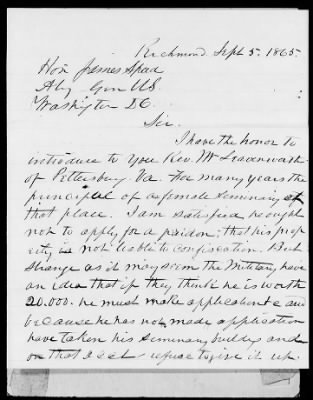 Richmond, Sept 5. 1865.
Hon James Speed
Aty Gen U.S.
Washington D.C.
Sir.
I have the honor to
introduce to you Rev. Mr Leavenworth
of Petersburg Va. For many years the
principal of a female seminary at
that place. I am satisfied he ought
not to apply for a pardon; that his prop
erty is not liable to confiscation. But
strange as it may seem the Military have
an idea that if they think he is worth
20.000. he must make application and
because he has not made application
have taken his seminary building and
on that refuse to give it up.